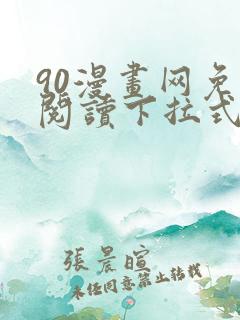 90漫畫网免
閱讀下拉式
張晨暄
未经同意禁止转载